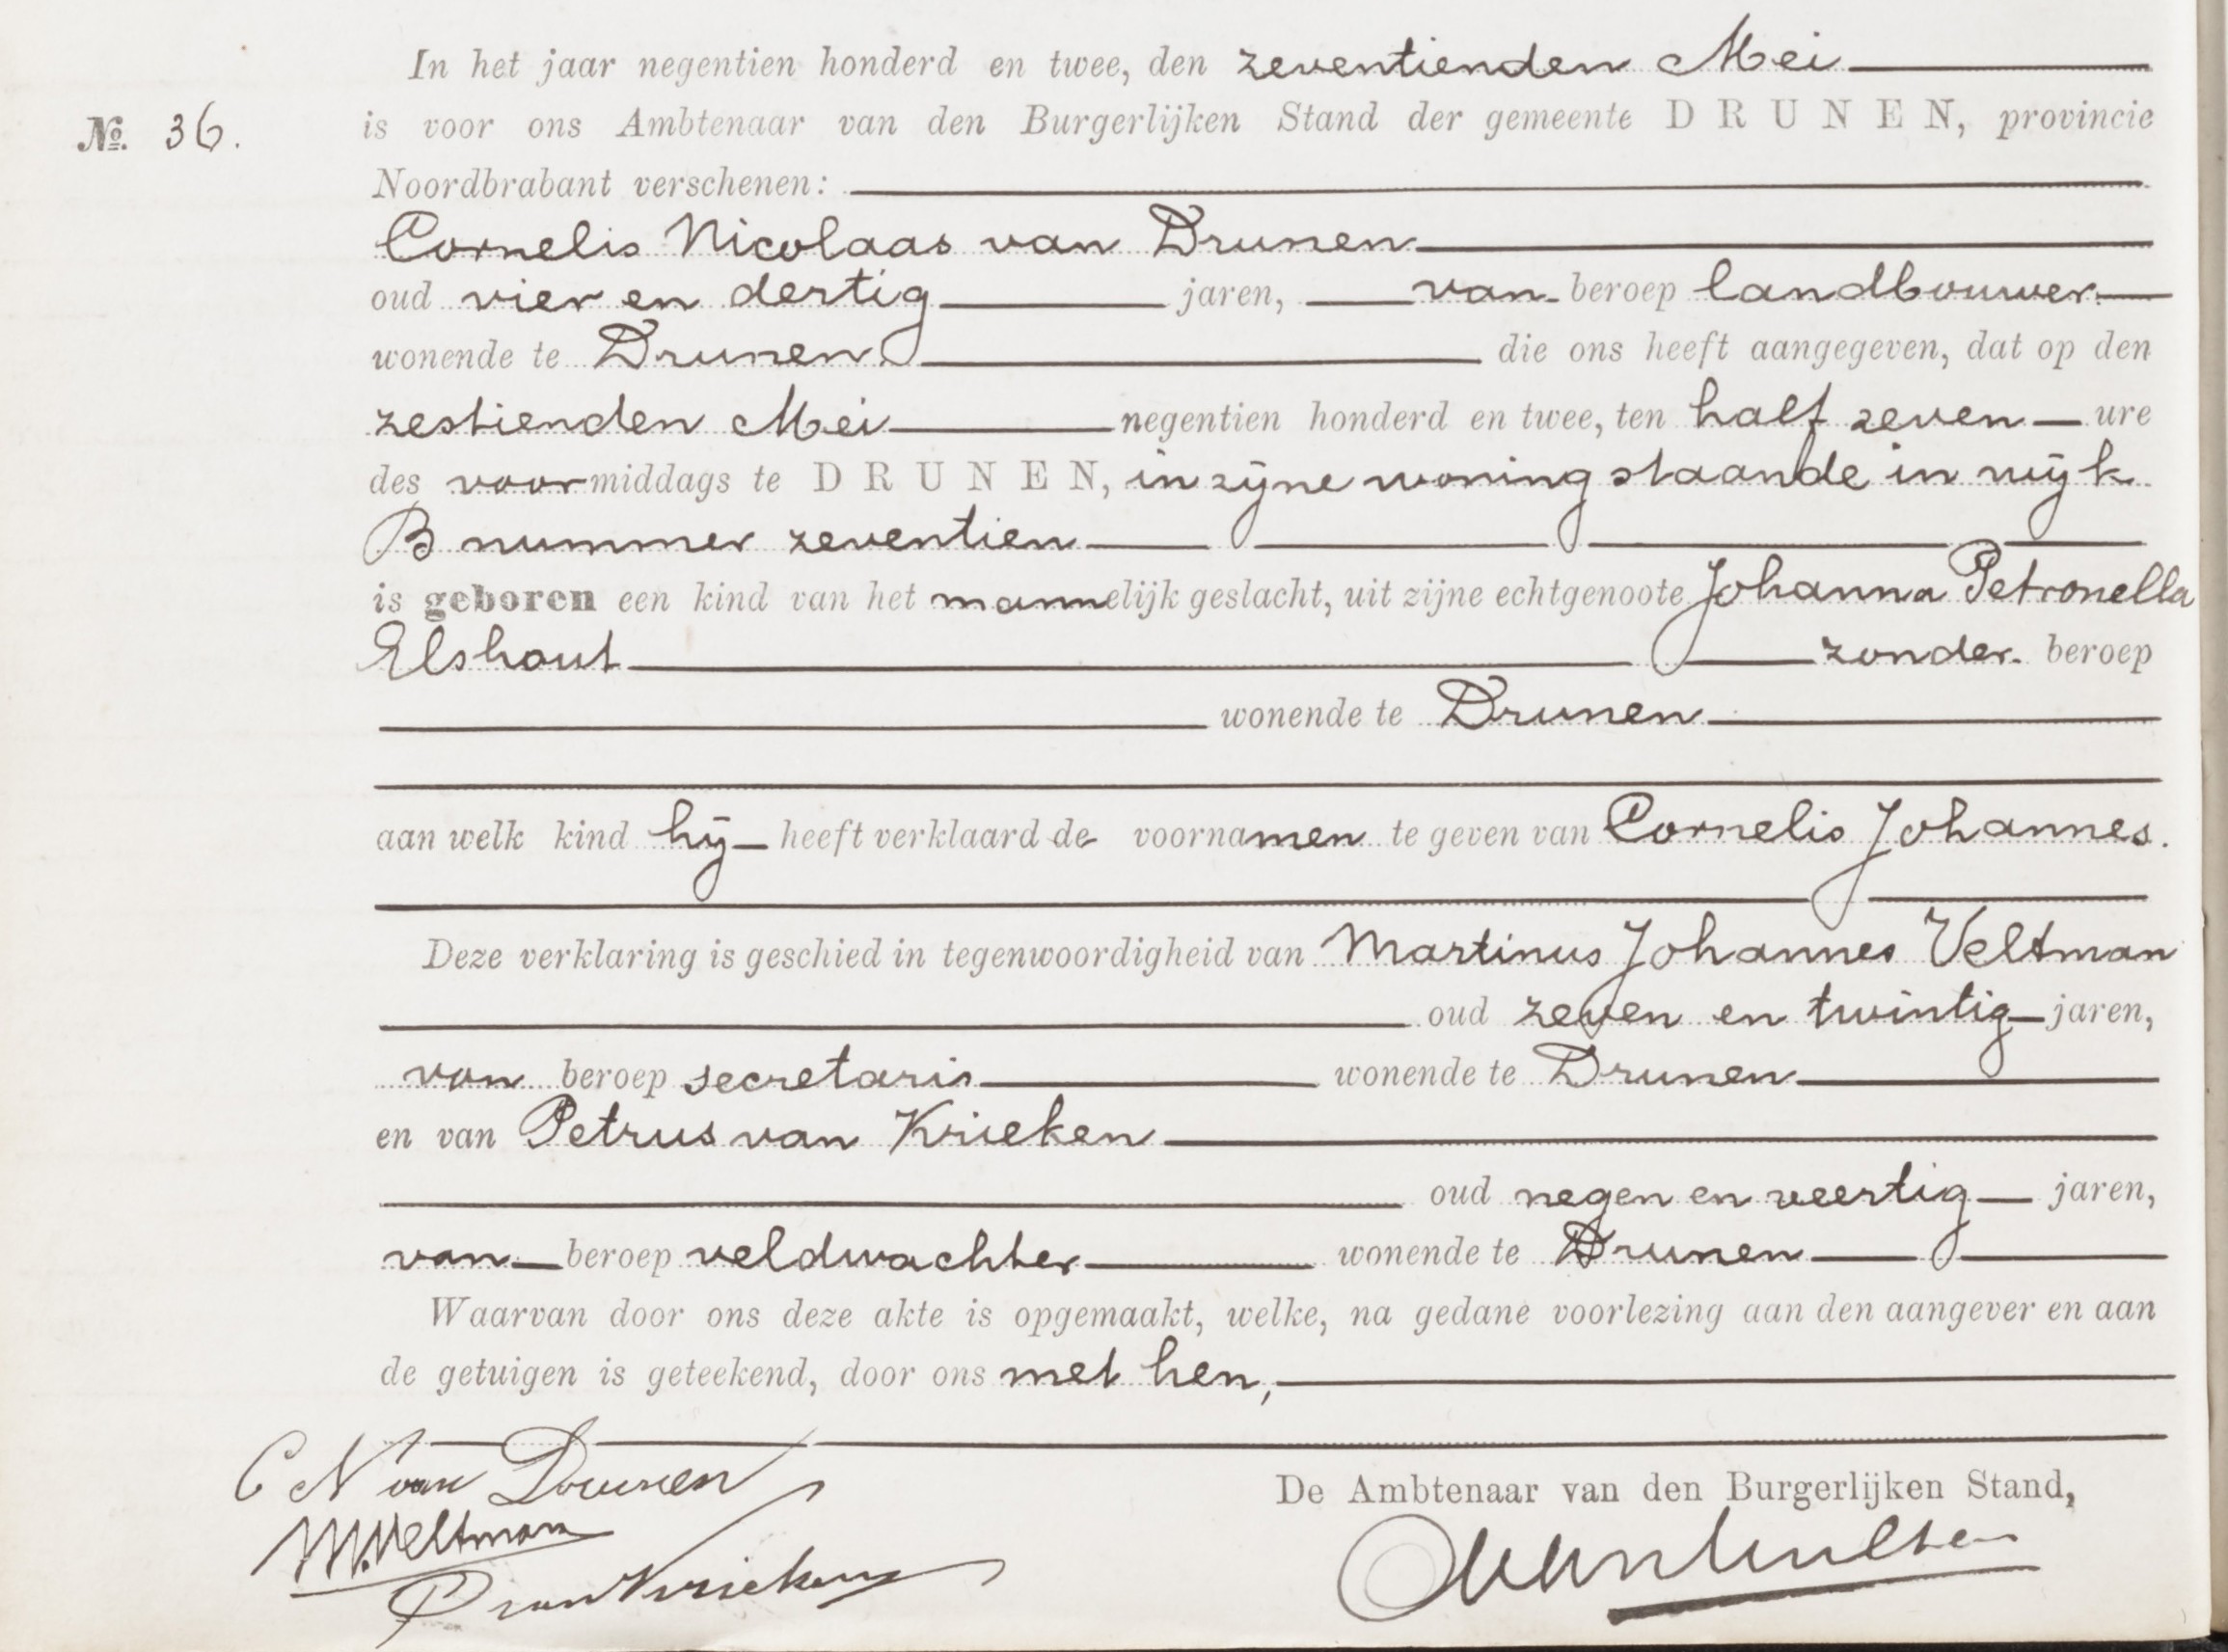 In het jaar negentien honderd en twee, den zeventienden Mei
№. 36.
is voor ons Ambtenaar van den Burgerlijken Stand der gemeente DRUNEN, provincie
Noordbrabant verschenen:
Cornelis Nicolaas van Drunen
oud vier en dertig jaren, van beroep landbouwer
wonende te Drunen die ons heeft aangegeven, dat op den
zestienden Mei negentien honderd en twee, ten half zeven ure
des voormiddags te DRUNEN, in zijne woning staande in wijk
B nummer zeventien
is geboren een kind van het mannelijk geslacht, uit zijne echtgenoote Johanna Petronella
Elshout zonder beroep
wonende te Drunen
aan welk kind hij heeft verklaard de voornamen te geven van Cornelis Johannes.
Deze verklaring is geschied in tegenwoordigheid van Martinus Johannes Veltman
oud zeven en twintig jaren,
van beroep secretaris wonende te Drunen
en van Petrus van Krieken
oud negen en veertig jaren,
van beroep veldwachter wonende te Drunen
Waarvan door ons deze akte is opgemaakt, welke, na gedane voorlezing aan den aangever en aan
de getuigen is geteekend, door ons met hen,
C N van Drunen
De Ambtenaar van den Burgerlijken Stand,
M. Veltman
P van Krieken